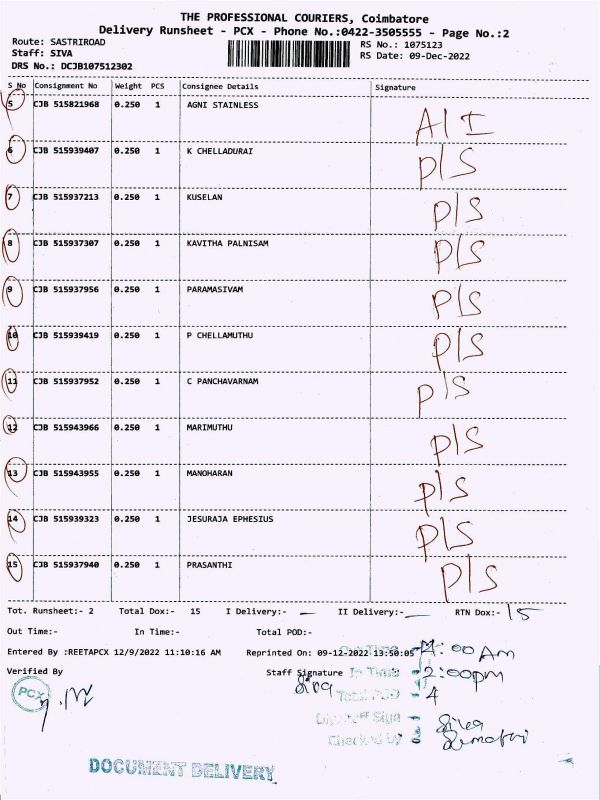 THE PROFESSIONAL COURIERS, Coimbatore
Delivery Runsheet - PCX - Phone No.:0422-3505555 - Page No.:2
Route: SASTRIROAD
RS No.: 1075123
Staff: SIVA
RS Date: 09-Dec-2022
DRS No.: DCJB107512302
S No Consignment No Weight PCS Consignee Details Signature
5 CJB 515821968 0.250 1 AGNI STAINLESS A/I
6 CJB 515939407 0.250 1 K CHELLADURAI P/S
7 CJB 515937213 0.250 1 KUSELAN P/S
8 CJB 515937307 0.250 1 KAVITHA PALNISAM P/S
9 CJB 515937956 0.250 1 PARAMASIVAM P/S
10 CJB 515939419 0.250 1 P CHELLAMUTHU P/S
11 CJB 515937952 0.250 1 C PANCHAVARNAM P/S
12 CJB 515943966 0.250 1 MARIMUTHU P/S
13 CJB 515943955 0.250 1 MANOHARAN P/S
14 CJB 515939323 0.250 1 JESURAJA EPHESIUS P/S
15 CJB 515937940 0.250 1 PRASANTHI P/S
Tot. Runsheet:- 2 Total Dox:- 15 I Delivery:- — II Delivery:- — RTN Dox:- 15
Out Time:- In Time:- Total POD:-
Entered By :REETAPCX 12/9/2022 11:10:16 AM Reprinted On: 09-12-2022 13:50:05
Out Time - :00 AM
Verified By Staff Signature
In Time - 2:00pm
PCX
Siva
Total POD - 4
Sign - Siva
Checked by
DOCUMENT DELIVERY